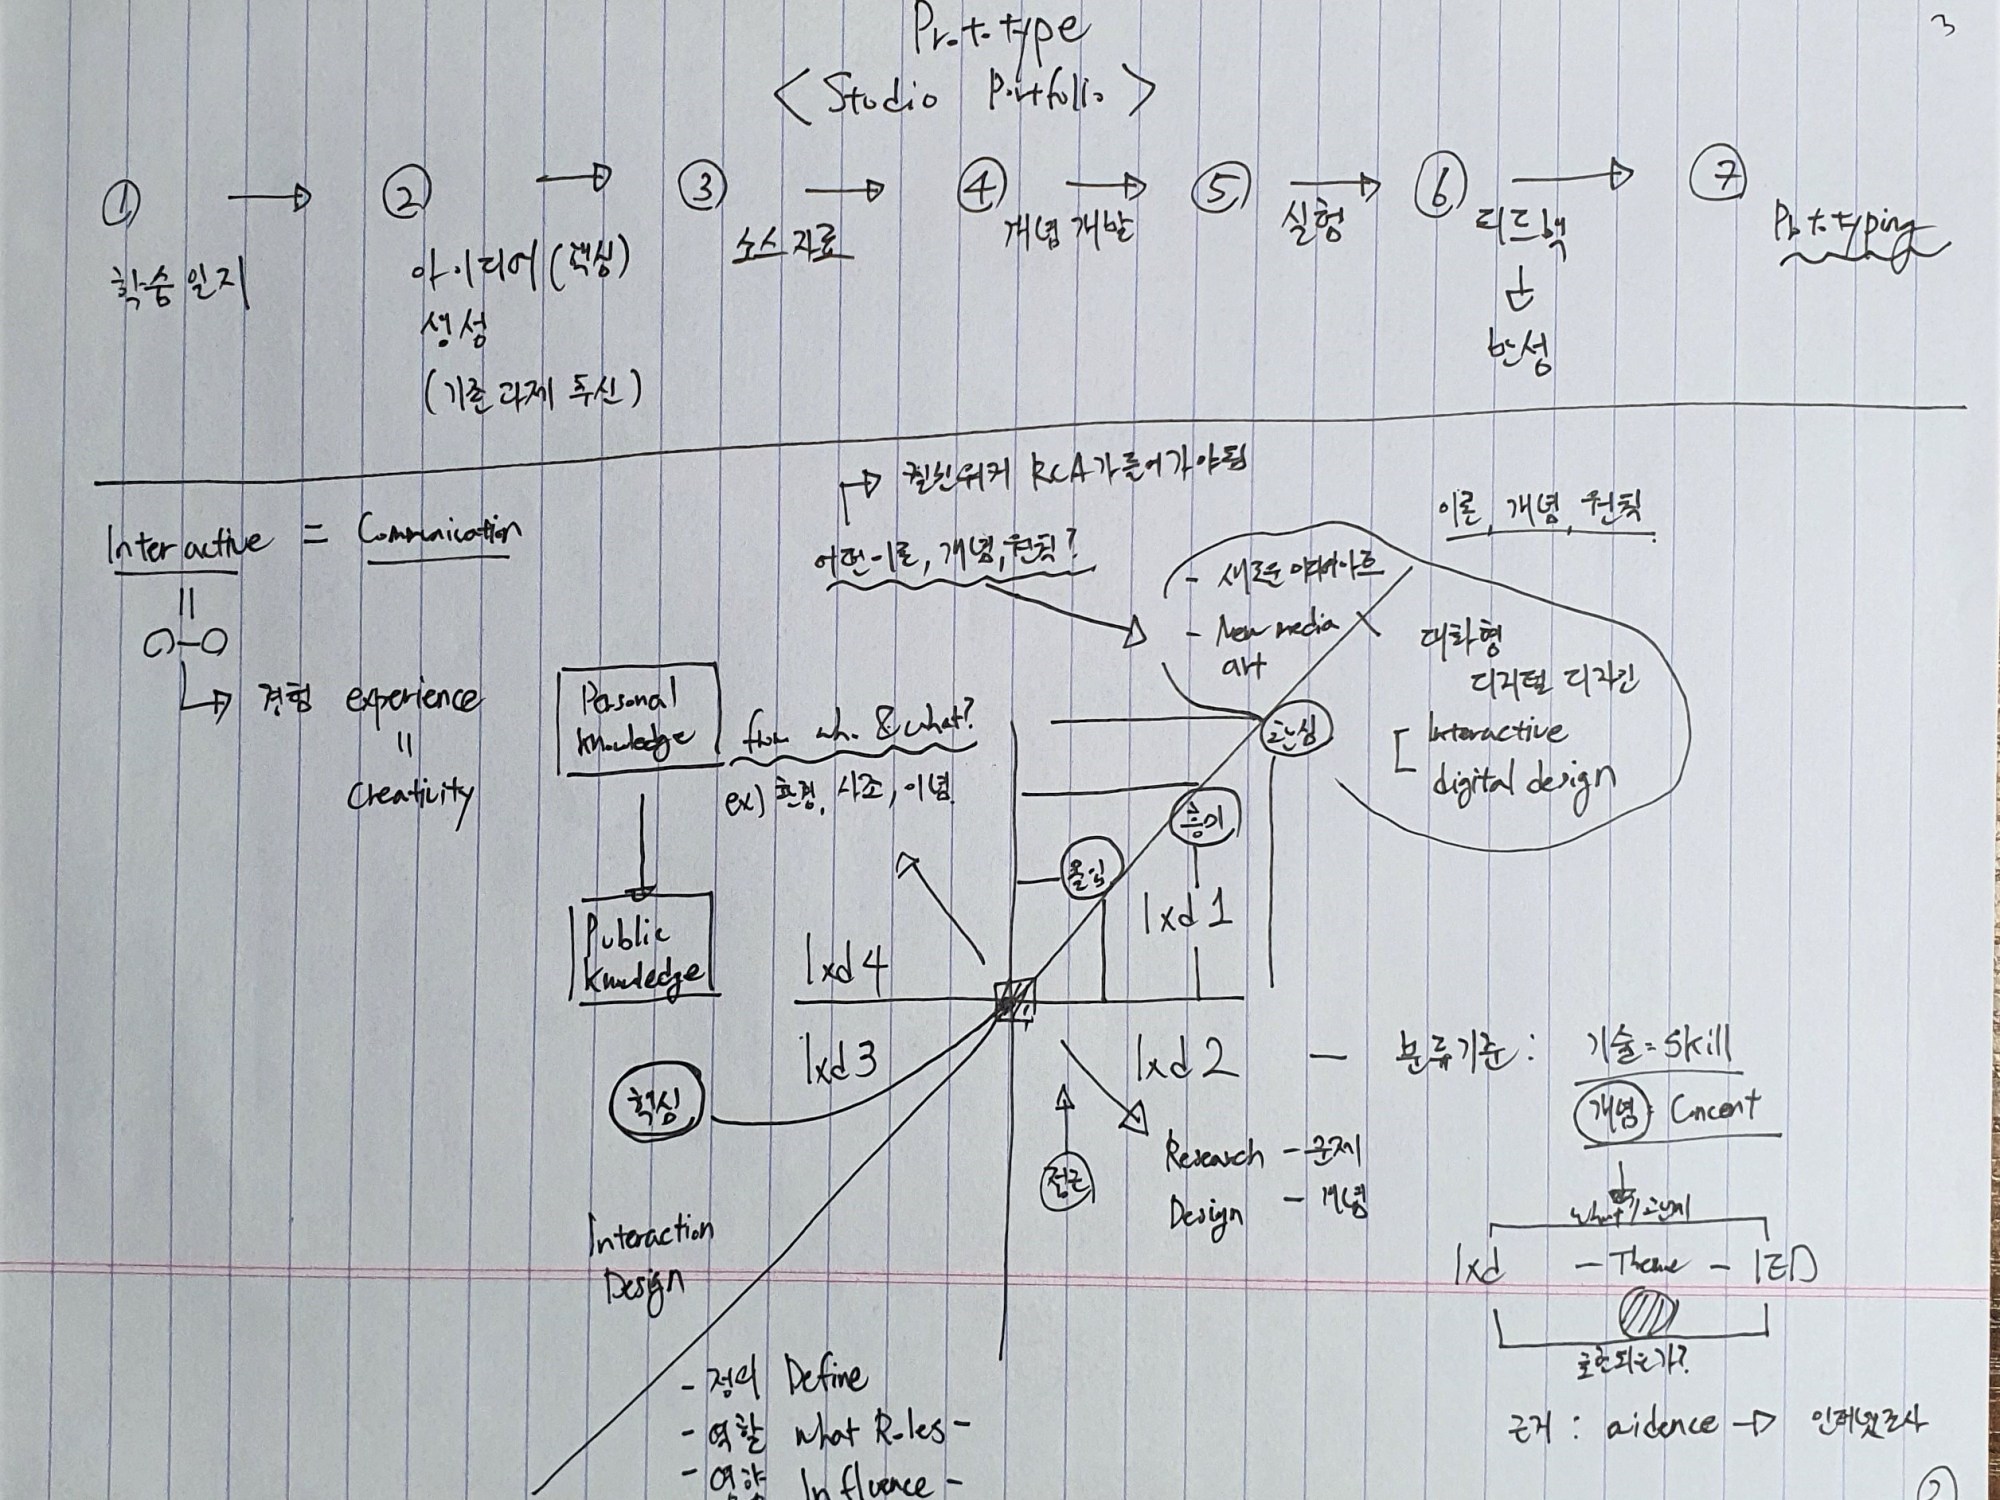 3
Prototype
< Studio Portfolio >
① → ② → ③ → ④ → ⑤ → ⑥ → ⑦
학습 일지
아이디어 (핵심)
생성
(기존 과제 혁신)
소스 자료
개념 개발
실험
피드백
반성
Prototyping
Interactive = Communication
경험 experience
creativity
RCA가 들어가야 됨
어떤 이론, 개념, 원칙?
이론, 개념, 원칙
- 새로운 미디어아트
- New media
art
대화형
디지털 디자인
Interactive
digital design
Personal
knowledge
from who & what?
ex) 환경, 사조, 이념
Public
knowledge
관심
흥미
몰입
Ixd 1
Ixd 4
Ixd 3
Ixd 2 — 분류기준 : 기술 = Skill
개념 = Concent
핵심
접근
Research - 문제
Design - 개념
Interaction
Design
What?
Ixd - Theme - IED
근거 : evidence → 인터넷조사
- 정의 Define
- 역할 what Roles -
- 영향 Influence -
2